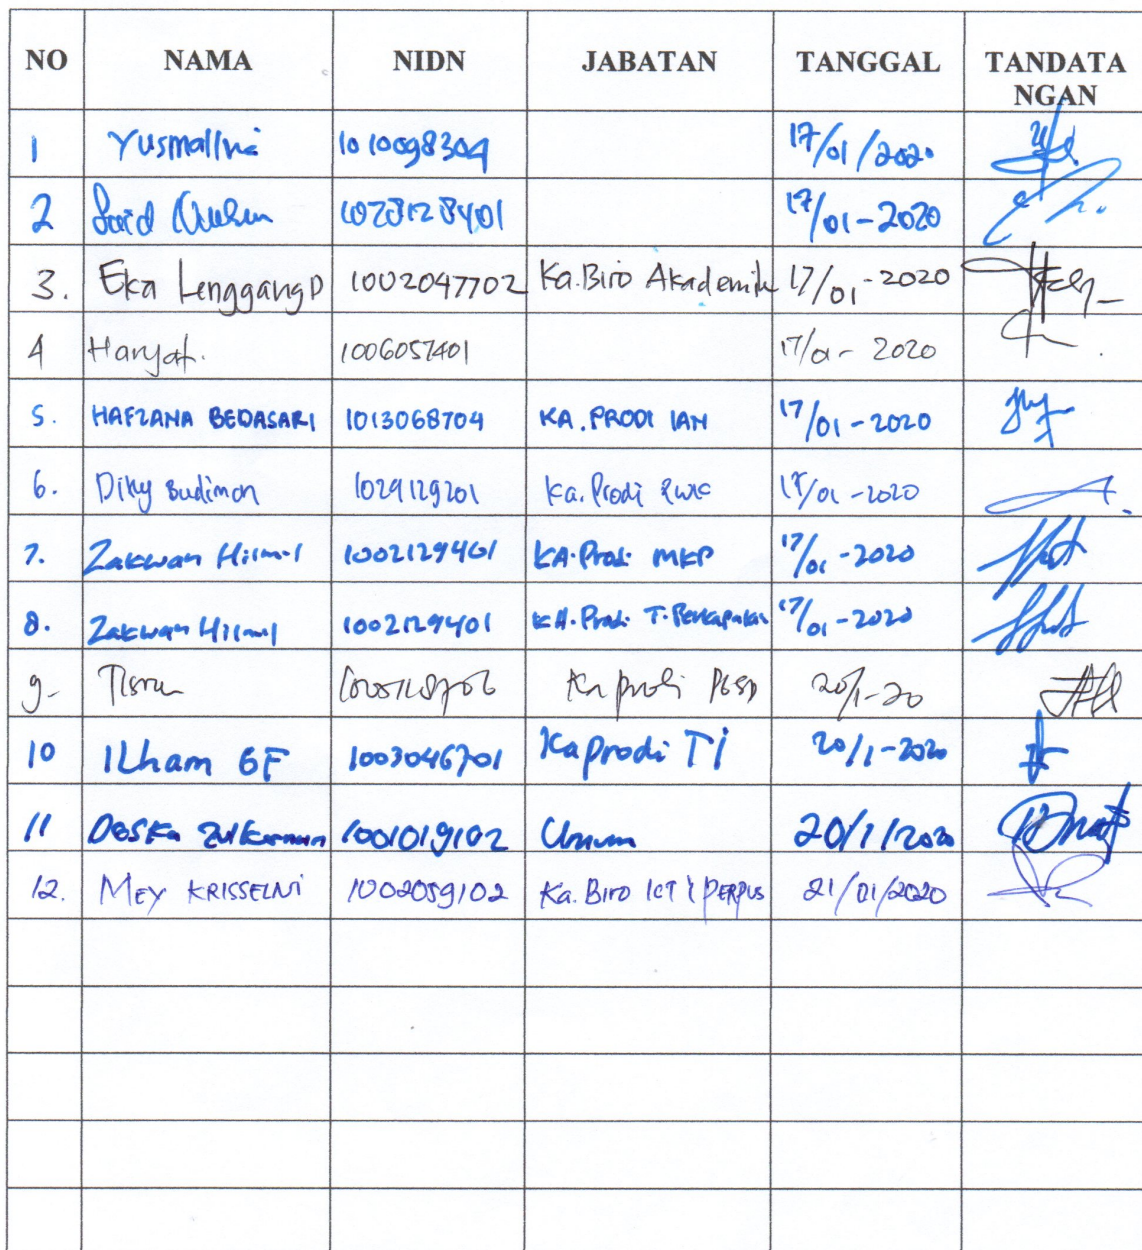 NO NAMA NIDN JABATAN TANGGAL TANDATA
NGAN
1 Yusmalinè 1010098304 17/01/2020
2 Said 1028128401 17/01-2020
3. Eka Lenggang D 1002047702 Ka.Biro Akademik 17/01-2020
4 Haryat. 1006057401 17/01- 2020
5. HAFZANA BEDASARI 1013068704 KA.PRODI IAN 17/01-2020
6. Diky Budiman 1029129201 Ka.Prodi 17/01-2020
7. Zakwan Hilmi 1002129401 KA.Prodi MKP 17/01-2020
8. Zakwan Hilmi 1002129401 KA.Prodi T.Perkapalan 17/01-2020
9- Ka prodi PGSD 20/1-20
10 Ilham EF 1003046701 Kaprodi TI 20/1-2020
11 Deska Zulkarnain 1001019102 Umum 20/1/2020
12. MEY KRISSELNI 1002059102 Ka. Biro ICT & PERPUS 21/01/2020